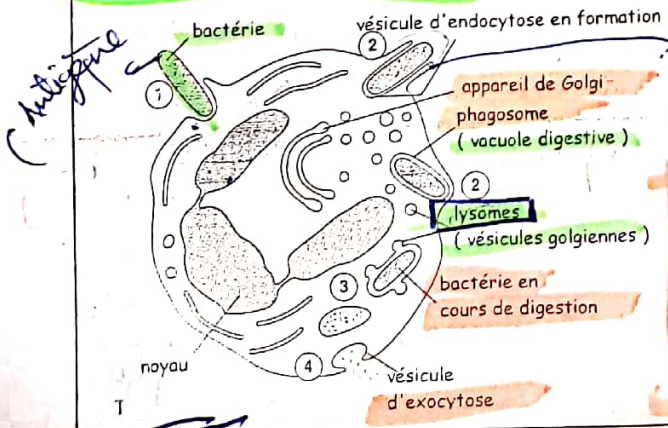 bactérie
antigène
①
②
vésicule d'endocytose en formation
appareil de Golgi
phagosome
( vacuole digestive )
②
lysomes
( vésicules golgiennes )
③
bactérie en
cours de digestion
noyau
④
vésicule
d'exocytose
I